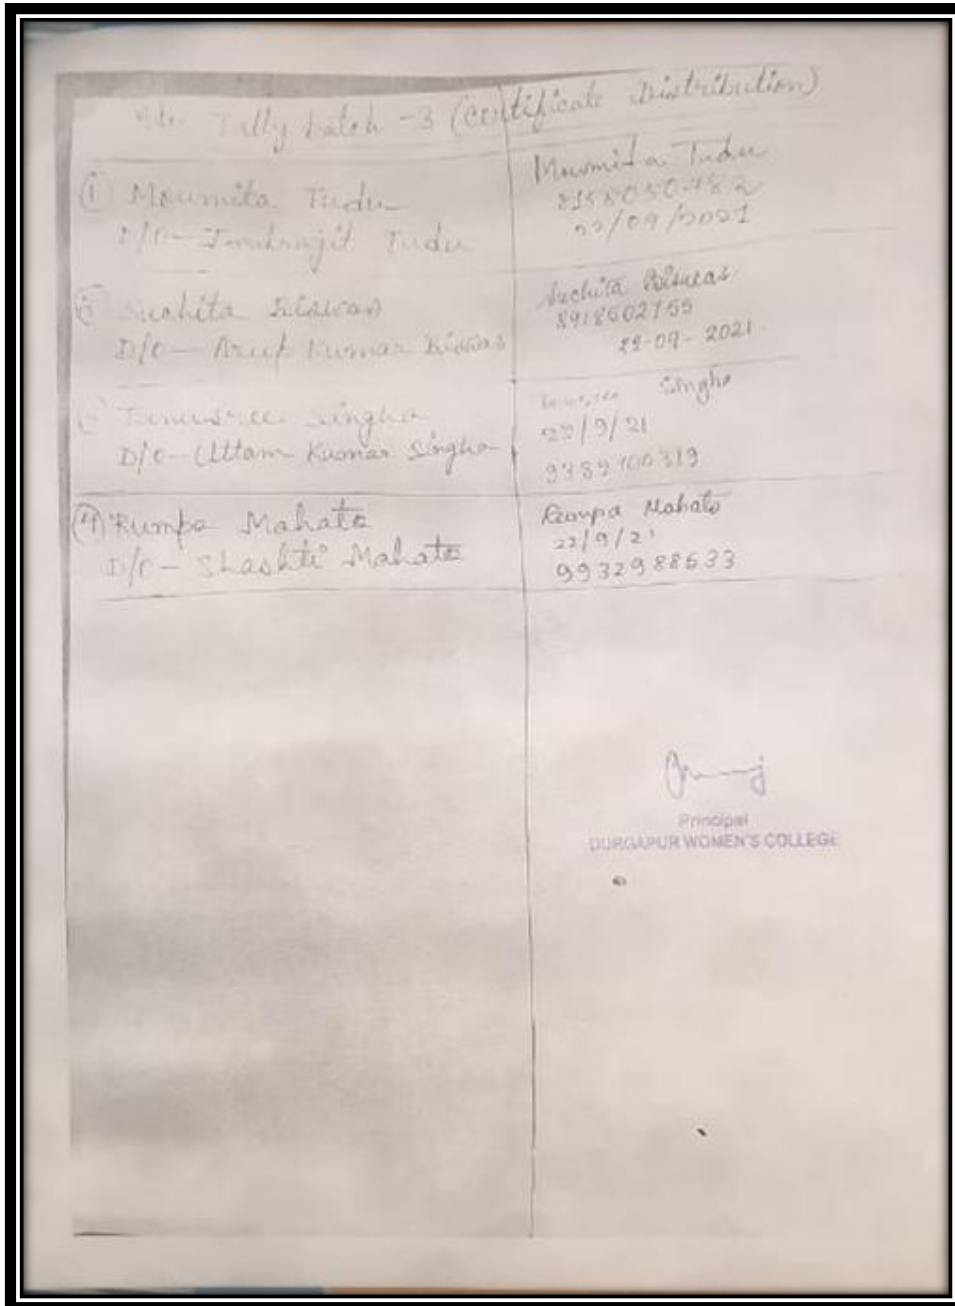 Tally batch - 3 (Certificate Distribution)
① Moumita Tudu
D/O - Indrajit Tudu
Moumita Tudu
22/09/2021
Suchita Biswas
D/O - Arup Kumar Biswas
Suchita Biswas
8918602755
22-09-2021
Singha
D/O - Uttam Kumar Singha
Singha
22/9/21
9382100319
④ Rumpa Mahato
D/O - Shashti Mahato
Rumpa Mahato
22/9/21
9932988533
Principal
DURGAPUR WOMEN'S COLLEGE